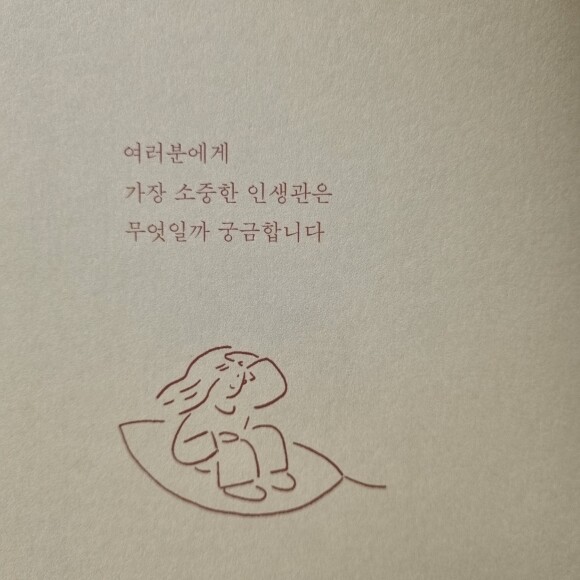 여러분에게
가장 소중한 인생관은
무엇일까 궁금합니다